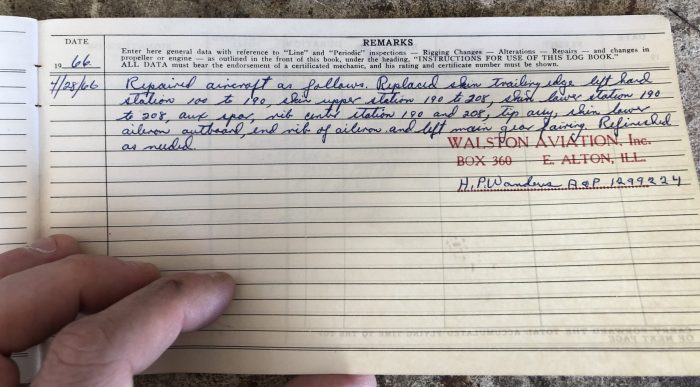 DATE
19 66
REMARKS
Enter here general data with reference to "Line" and "Periodic" inspections — Rigging Changes — Alterations — Repairs — and changes in
propeller or engine — as outlined in the front of this book, under the heading, "INSTRUCTIONS FOR USE OF THIS LOG BOOK."
ALL DATA must bear the endorsement of a certificated mechanic, and his rating and certificate number must be shown.
4/28/66 Repaired aircraft as follows. Replaced skin trailing edge left hand
station 100 to 190, skin upper station 190 to 208, skin lower station 190
to 208, aux spar, rib center station 190 and 208, tip assy, skin lower
aileron outboard, end rib of aileron and left main gear fairing. Refinished
as needed.
WALSTON AVIATION, Inc.
BOX 360 E. ALTON, ILL.
H.P. Wanders A&P 1299224